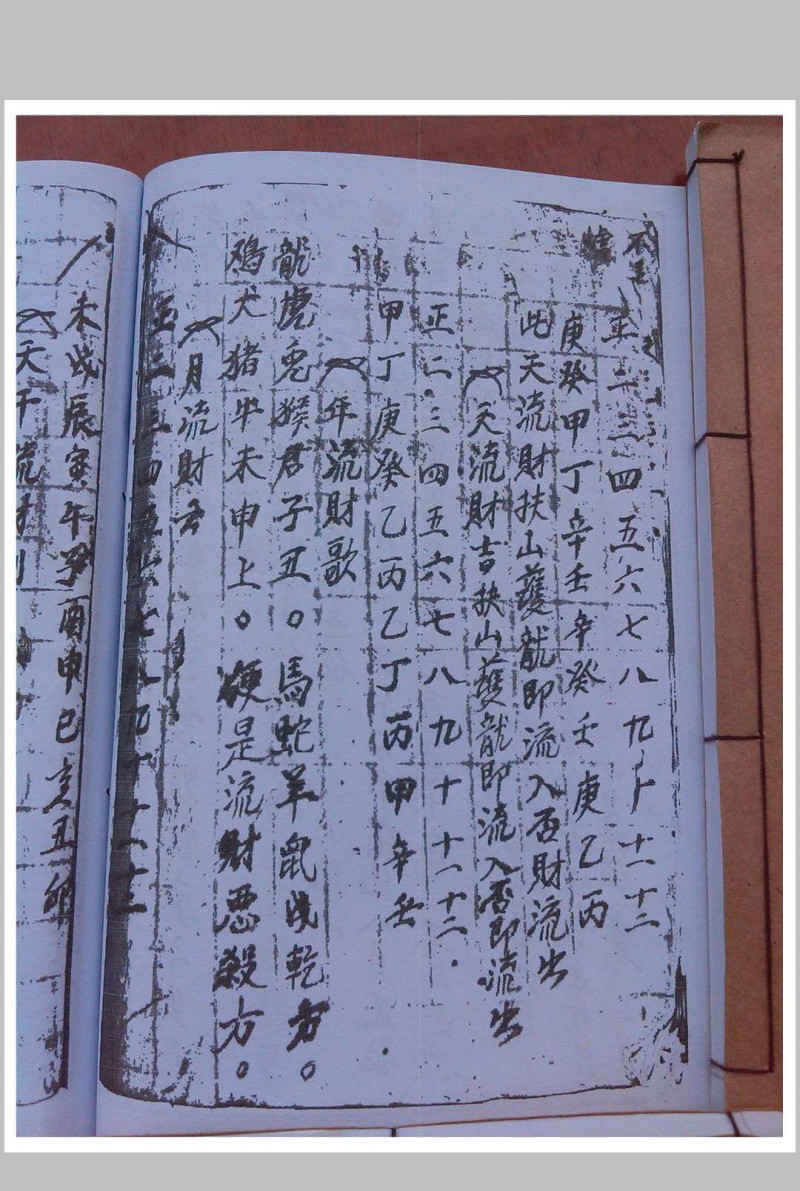 正二三四五六七八九十十一十二
庚癸甲丁辛壬辛癸壬庚乙丙
此天流財扶山蔭龍即流入否財流出
天流財吉扶山蔭龍即流入否即流出
正二三四五六七八九十十一十二
甲丁庚癸乙丙乙丁丙甲辛壬
年流財歌
龍虎兎猴君子丑。馬蛇羊鼠戌乾方。
鸡犬猪牛未申上。便是流財惡殺方。
月流財
正二三四五六七八九十十一十二
未戌辰寅午子酉申巳亥丑卯
天干流財